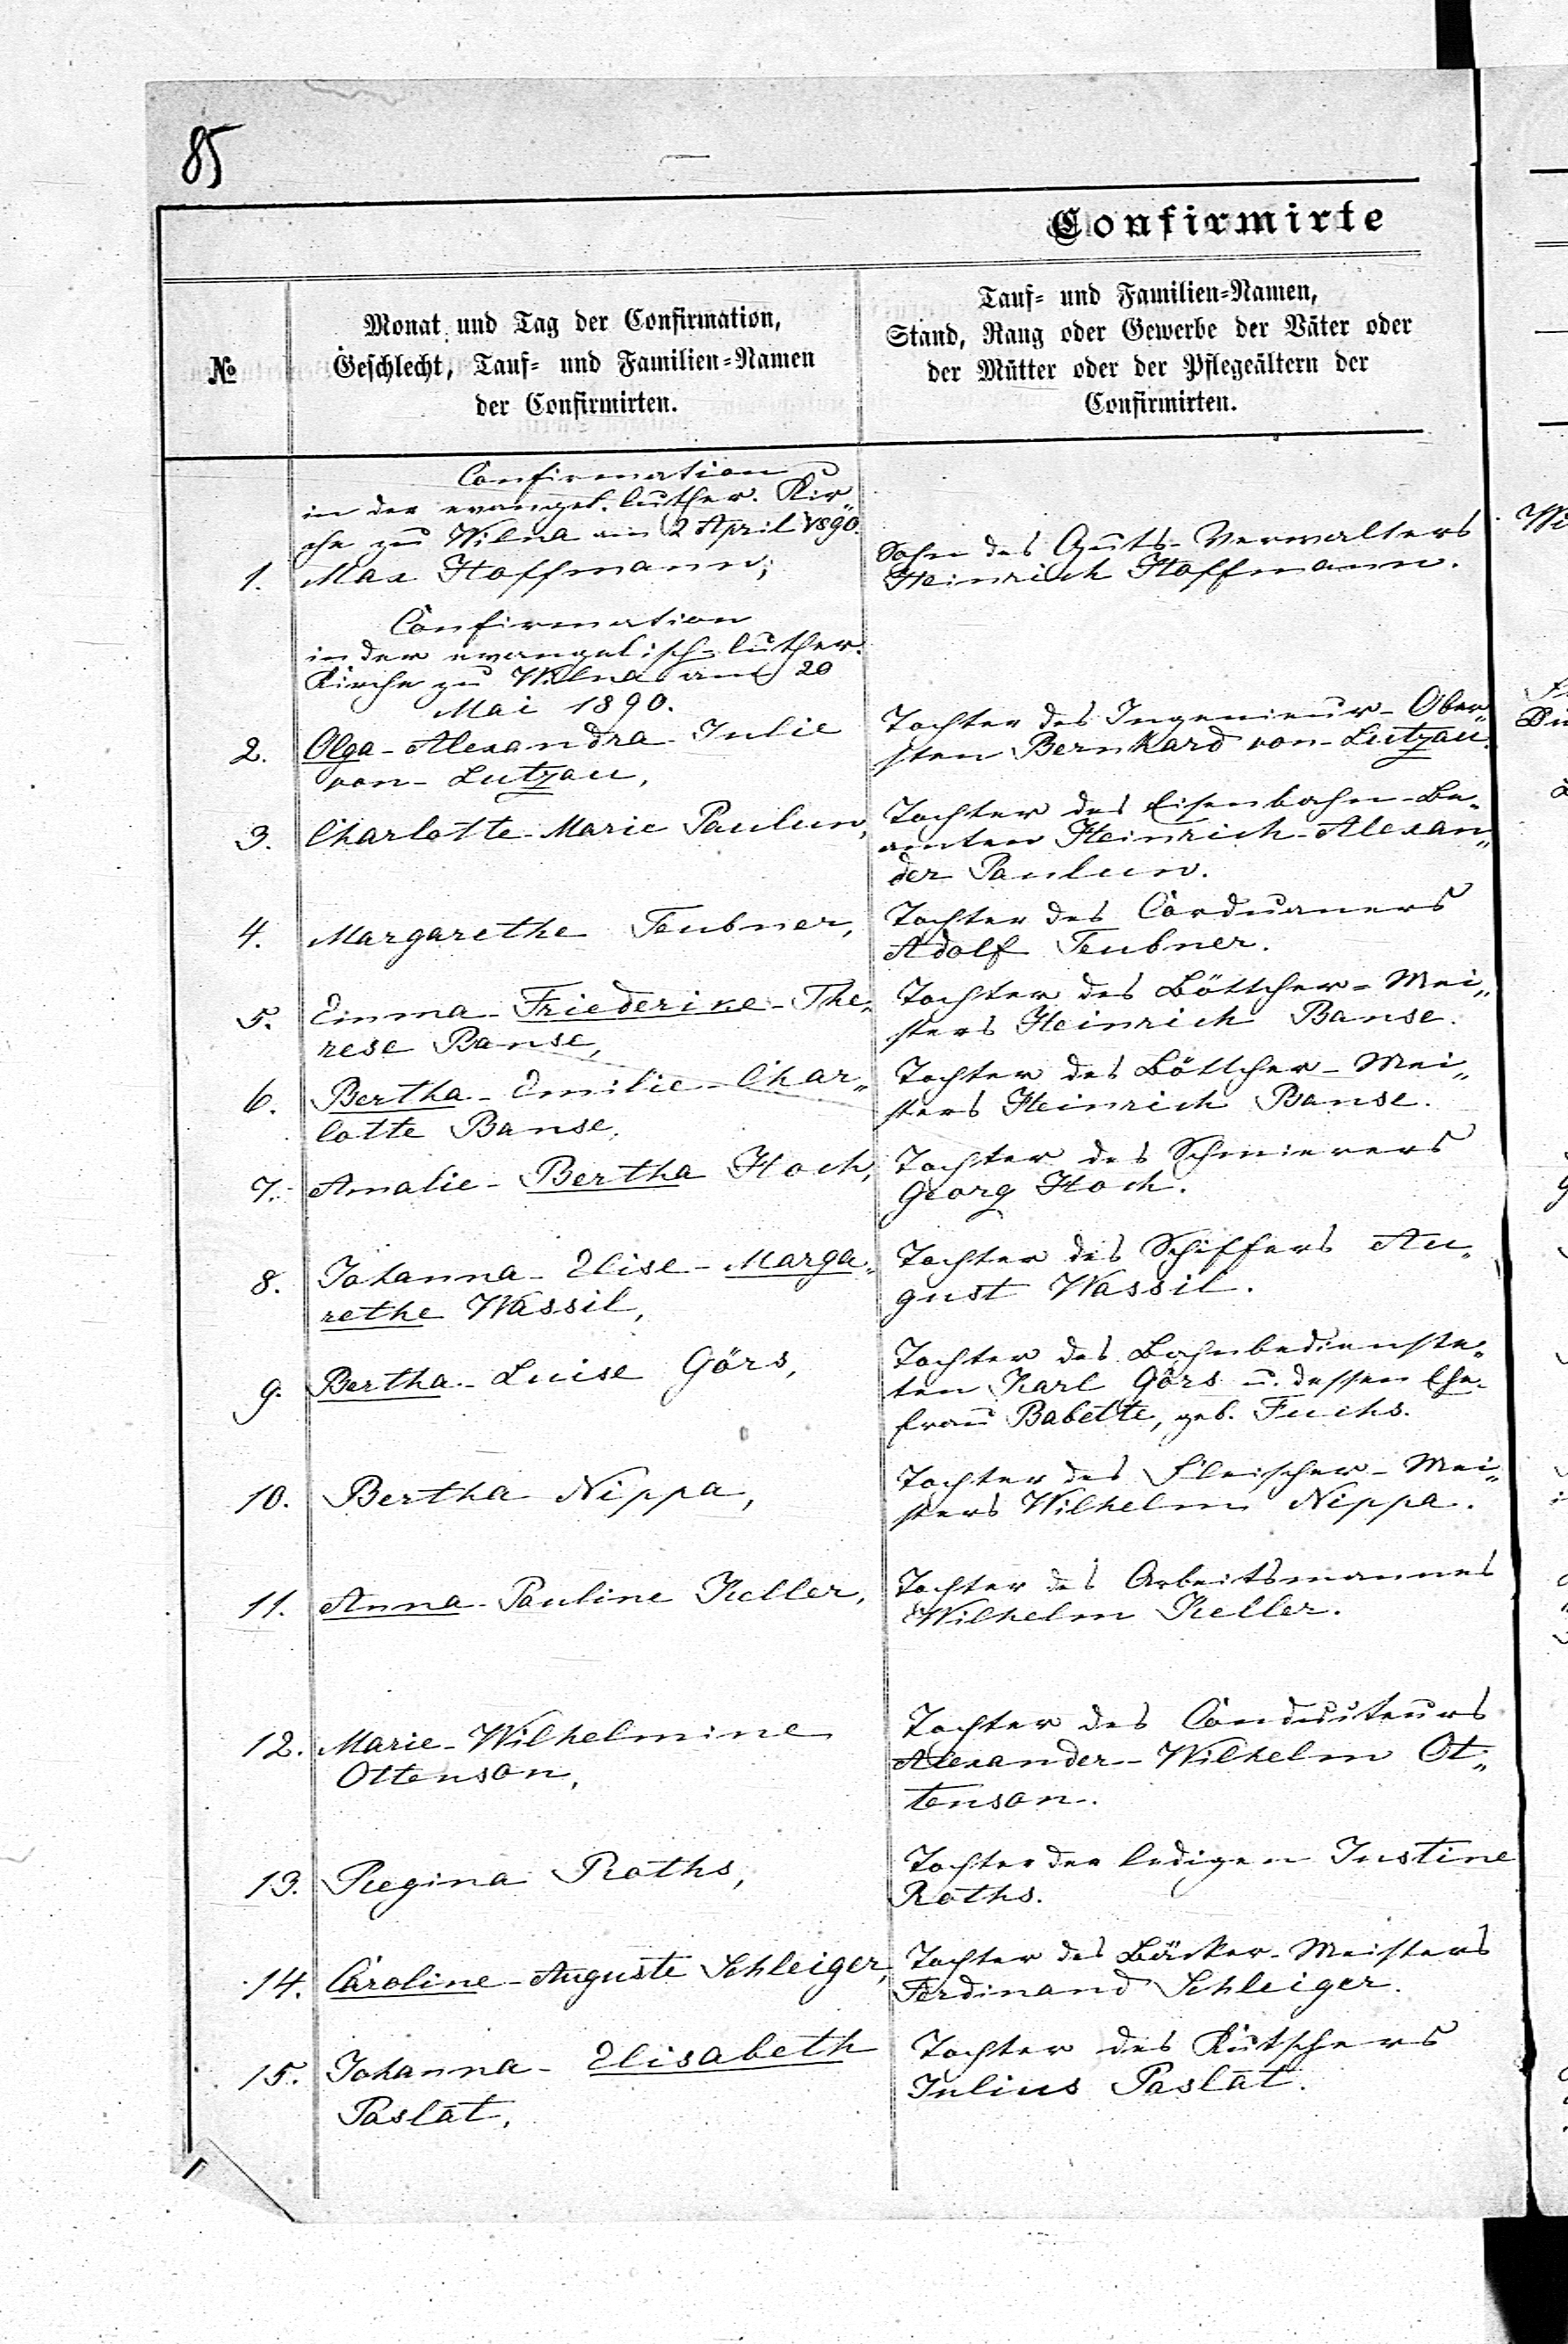 85
Confirmirte
№
Monat und Tag der Confirmation,
Geschlecht, Tauf- und Familien-Namen
der Confirmirten.
Tauf- und Familien-Namen,
Stand, Rang oder Gewerbe der Väter oder
der Mütter oder der Pflegeältern der
Confirmirten.
Confirmation
in der evangel. luther. Kir„
che zu Wilna am 2 April 1890.
1. Max Hoffmann,
Sohn des Guts-Verwalters
Heinrich Hoffmann.
Confirmation
in der evangelisch-luther.
Kirche zu Wilna am 20
Mai 1890.
2. Olga-Alexandra Julie
von-Lutzau,
Tochter des Ingenieur-Ober„
sten Bernhard von-Lutzau.
3. Charlotte-Marie Paulun,
Tochter des Eisenbahn-Be„
amten Heinrich-Alexan„
der Paulun.
4. Margarethe Teubner,
Tochter des Corduaners
Adolf Teubner.
5. Emma-Friederike-The„
rese Banse,
Tochter des Böttcher-Mei„
sters Heinrich Banse.
6. Bertha-Emilie-Char„
lotte Banse,
Tochter des Böttcher-Mei„
sters Heinrich Banse.
7. Amalie-Bertha Hoch,
Tochter des Schmierers
Georg Hoch.
8. Johanna-Elise-Marga„
rethe Wassil,
Tochter des Schiffers Au„
gust Wassil.
9. Bertha-Luise Görs,
Tochter des Bahnbedienste„
ten Karl Görs u. dessen Ehe„
frau Babette, geb. Fuchs.
10. Bertha Nippa,
Tochter des Fleischer-Mei„
sters Wilhelm Nippa.
11. Anna-Pauline Keller,
Tochter des Arbeitsmannes
Wilhelm Keller.
12. Marie-Wilhelmine
Ottenson,
Tochter des Conducteurs
Alexander-Wilhelm Ot„
tenson.
13. Regina Roths,
Tochter der ledigen Justine
Roths.
14. Caroline-Auguste Schleiger,
Tochter des Bäcker-Meisters
Ferdinand Schleiger.
15. Johanna-Elisabeth
Paslat,
Tochter des Kutschers
Julius Paslat.